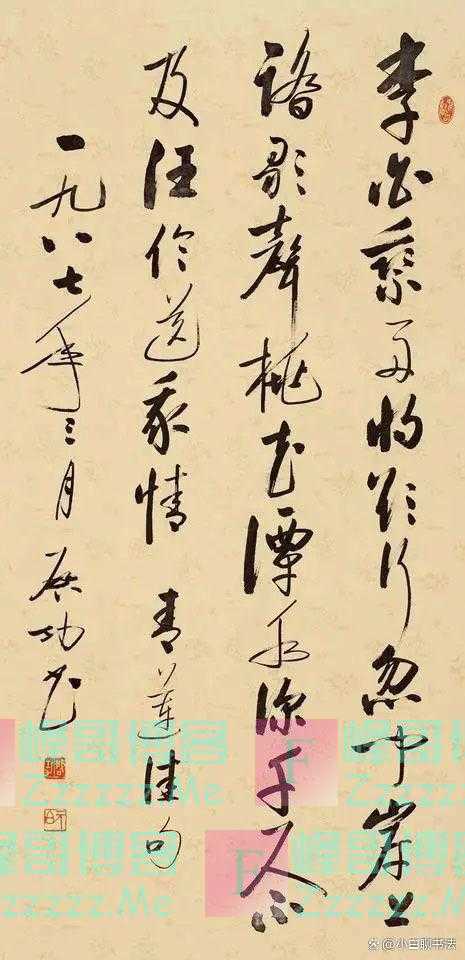 李白乘舟将欲行忽闻岸上
踏歌聲桃花潭水深千尺不
及汪伦送我情 青蓮佳句
一九八七年三月 启功书
峰哥博客
Zzzzzz.Me
峰哥博客
Zzzzzz.Me
峰哥博客
Zzzzz.Me
峰哥博客
Zzzzz.Me
@小白聊书法